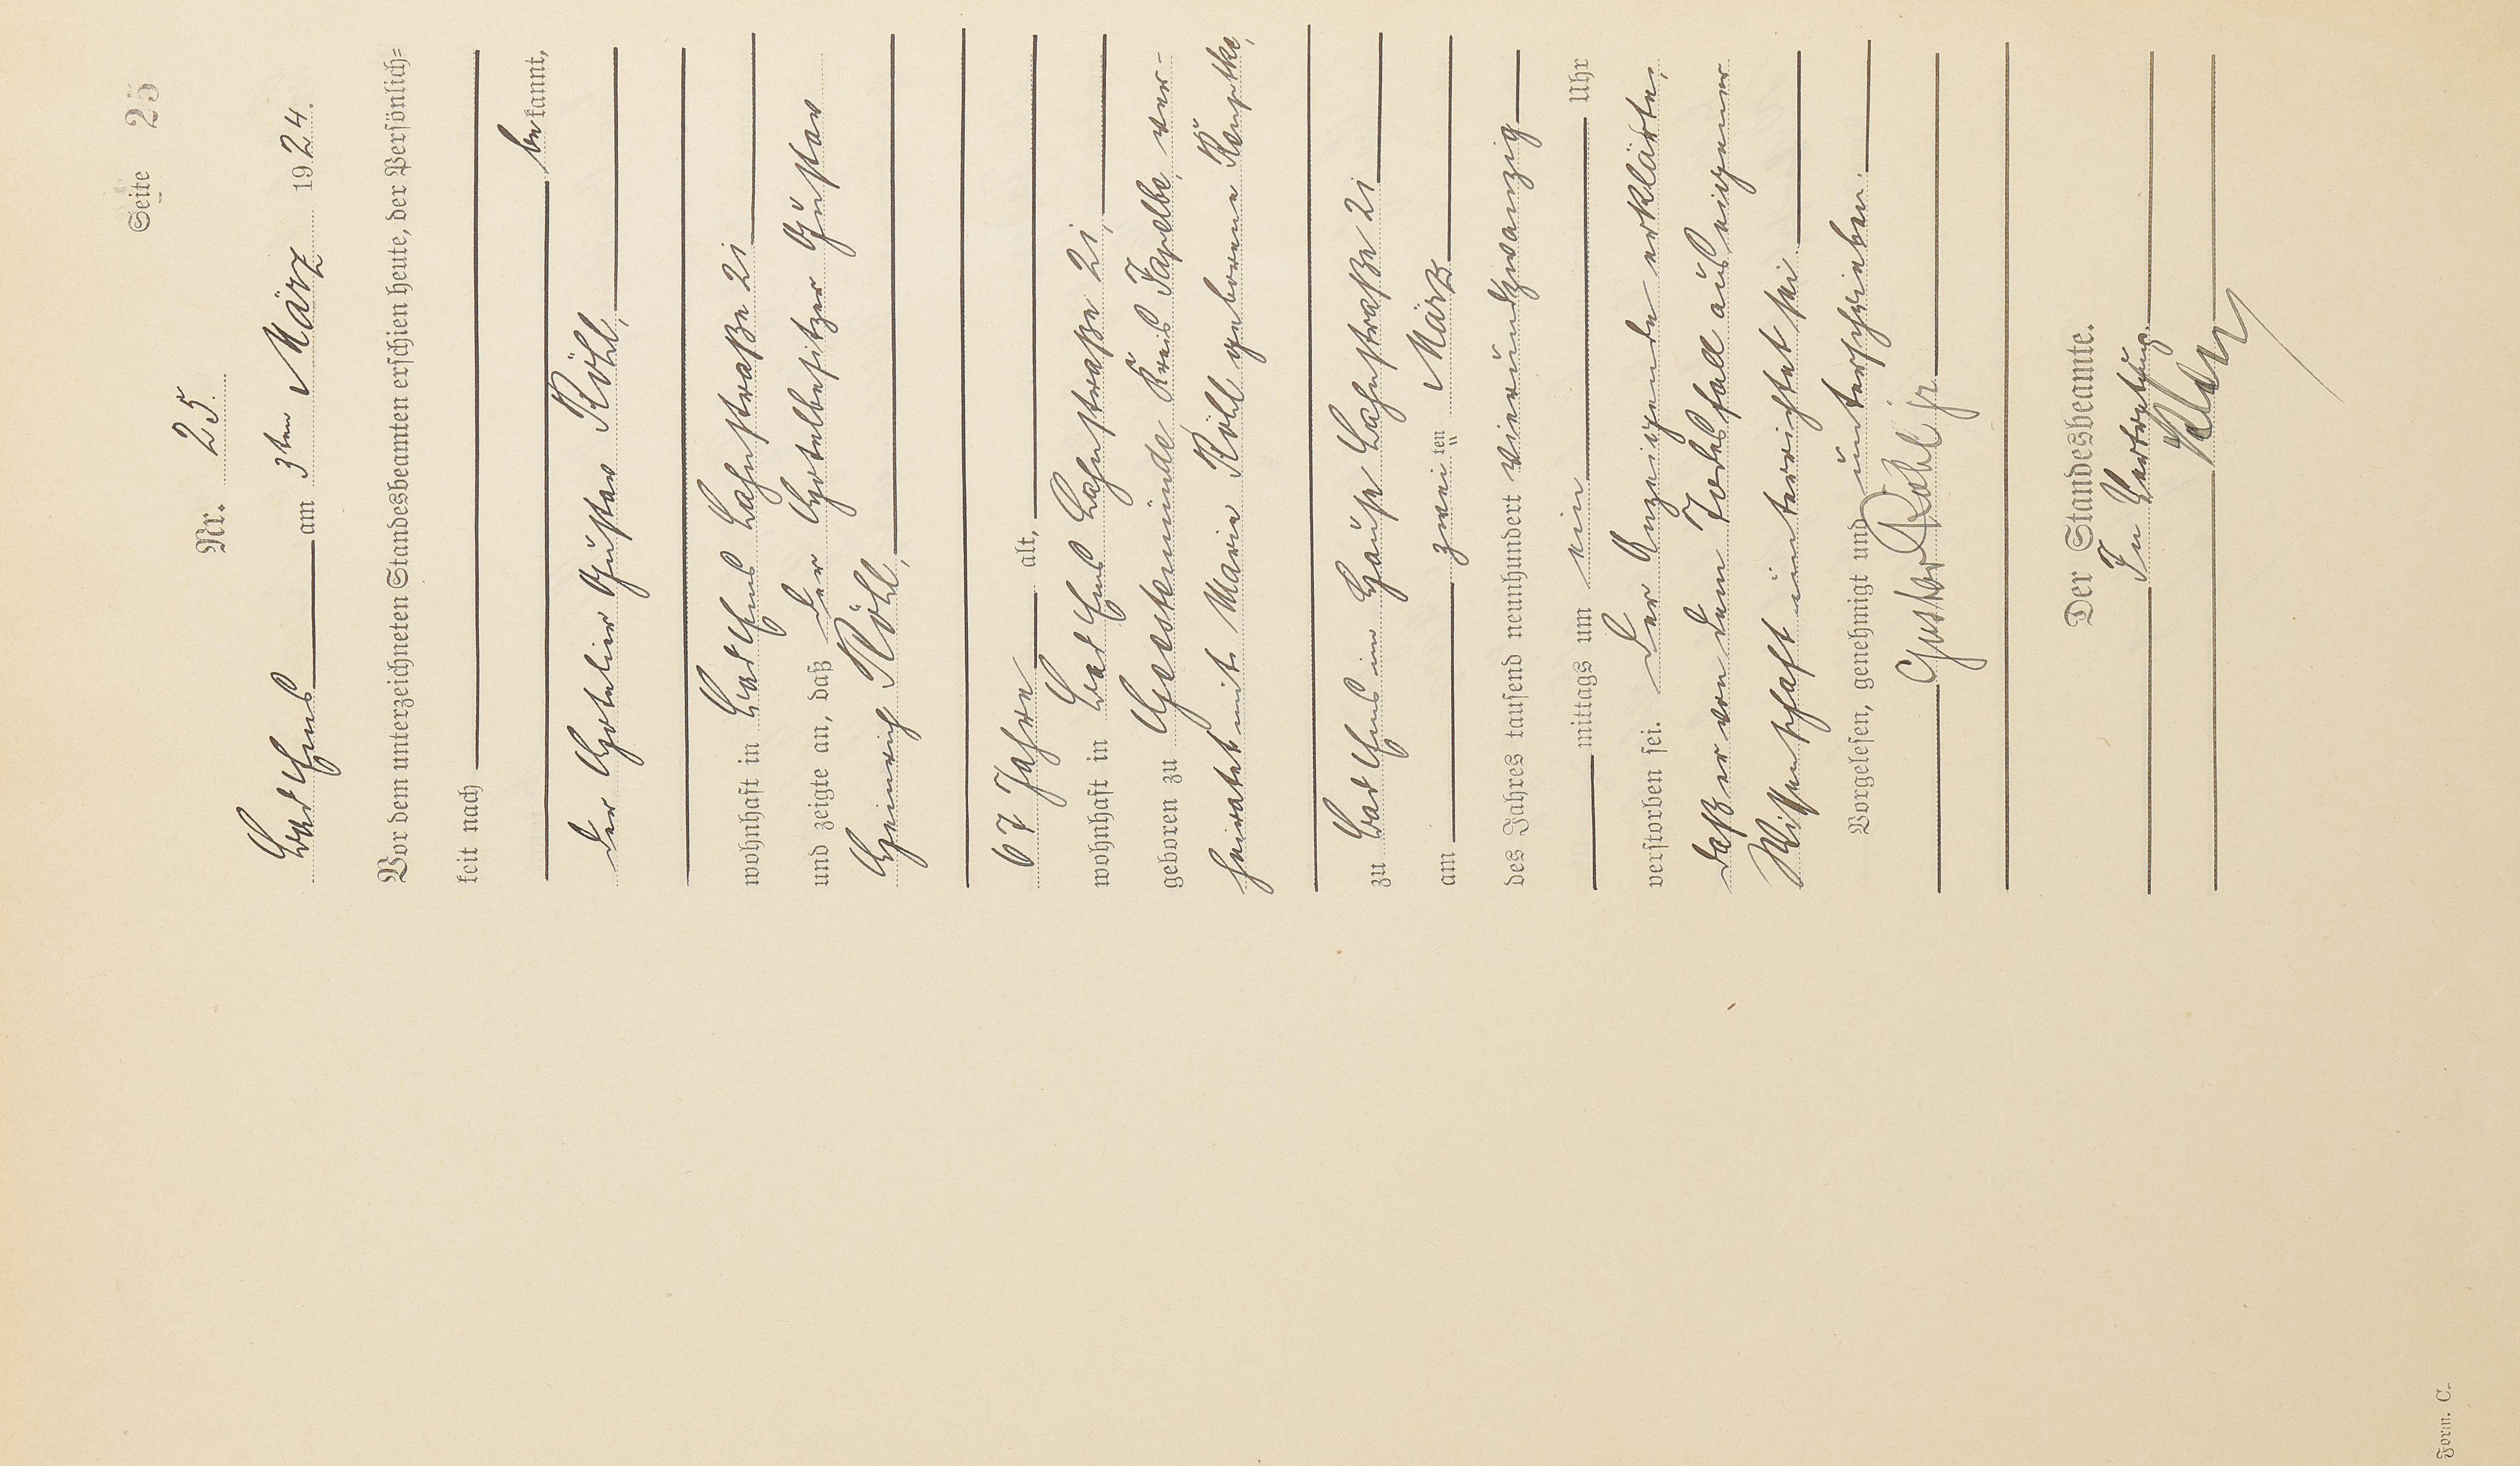 Seite 25
Nr. 25.
Bad Ems am 3ten März 1924.
Vor dem unterzeichneten Standesbeamten erschien heute, der Persönlich=
keit nach
be kannt,
der Hotelier Gustav Röhl,
wohnhaft in Bad Ems Lahnstraße 21
und zeigte an, daß der Hotelbesitzer Gustav
Heinrich Röhl,
67 Jahre alt,
wohnhaft in Bad Ems Lahnstraße 21,
geboren zu Kreis ver-
heiratet mit Marie Röhl geborene
zu Bad Ems im Hause Lahnstraße 21
am zwei ten März
des Jahres tausend neunhundert vierundzwanzig
mittags um ein Uhr
verstorben sei. Der Anzeigende erklärte,
daß er von dem Todesfall aus eigener
Wissenschaft unterrichtet sei.
Vorgelesen, genehmigt und unterschrieben.
Gustav Röhl jr.
Der Standesbeamte.
In Vertretung.
Form. C.